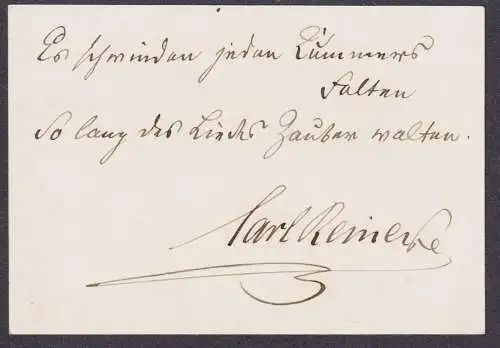 Es schwinden jeden Kummers
Falten
So lang des Liedes Zauber walten.
Carl Reinecke